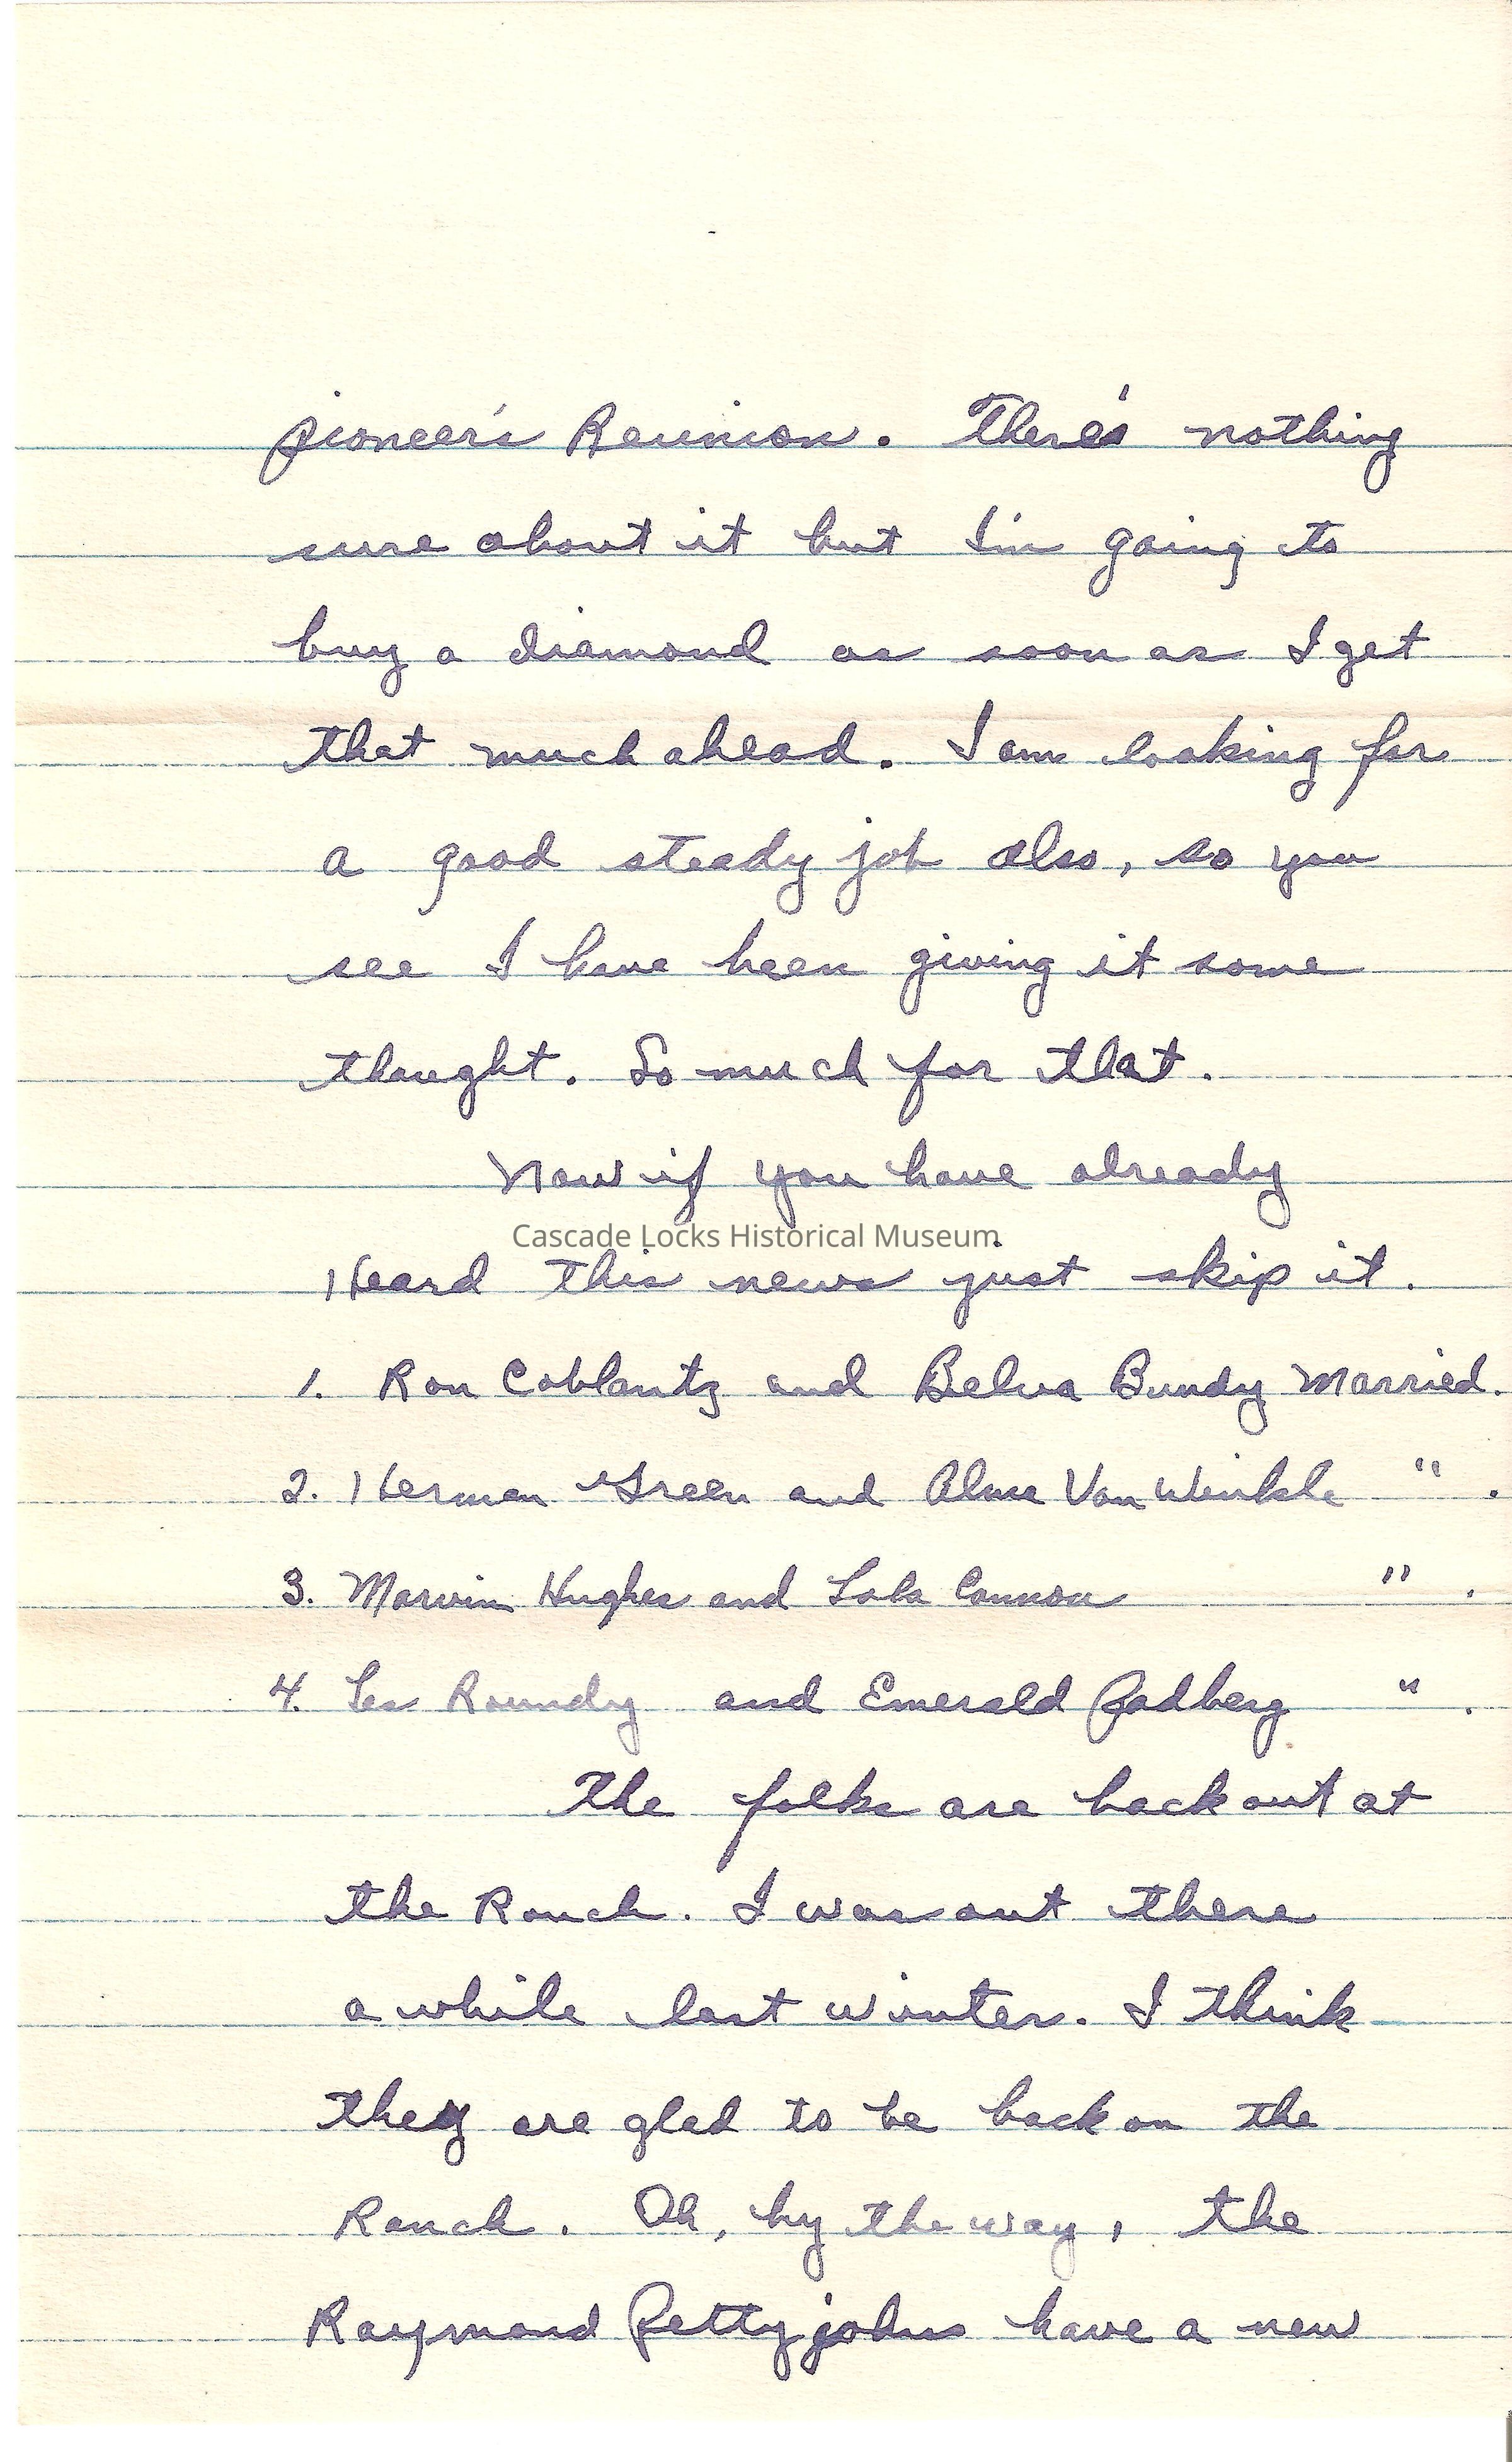 pioneer's Reunion. There's nothing
sure about it but I'm going to
buy a diamond as soon as I get
that much ahead. I am looking for
a good steady job also, so you
see I have been giving it some
thought. So much for that.
Now if you have already
Cascade Locks Historical Museum
Heard this news just skip it.
1. Ron Coblantz and Belva Bundy Married.
2. Herman Green and Alma Van Winkle " .
3. Marvin Hughes and Lola Cannon " .
4. Les Roundy and Emerald Padberg " .
The folks are back out at
the Ranch. I was out there
a while last winter. I think
they are glad to be back on the
Ranch. Oh, by the way, the
Raymond Pettyjohns have a new